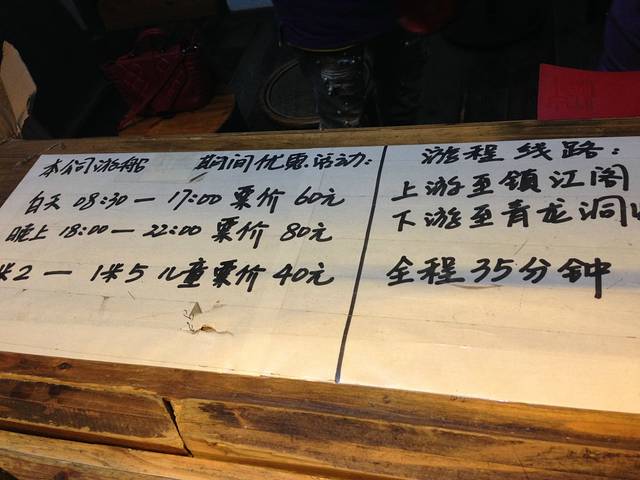 本公司游船 期间优惠活动:
白天 08:30 — 17:00 票价 60元
晚上 18:00 — 22:00 票价 80元
米2 — 1米5 儿童票价 40元
游程线路:
上游至镇江阁
下游至青龙洞
全程35分钟